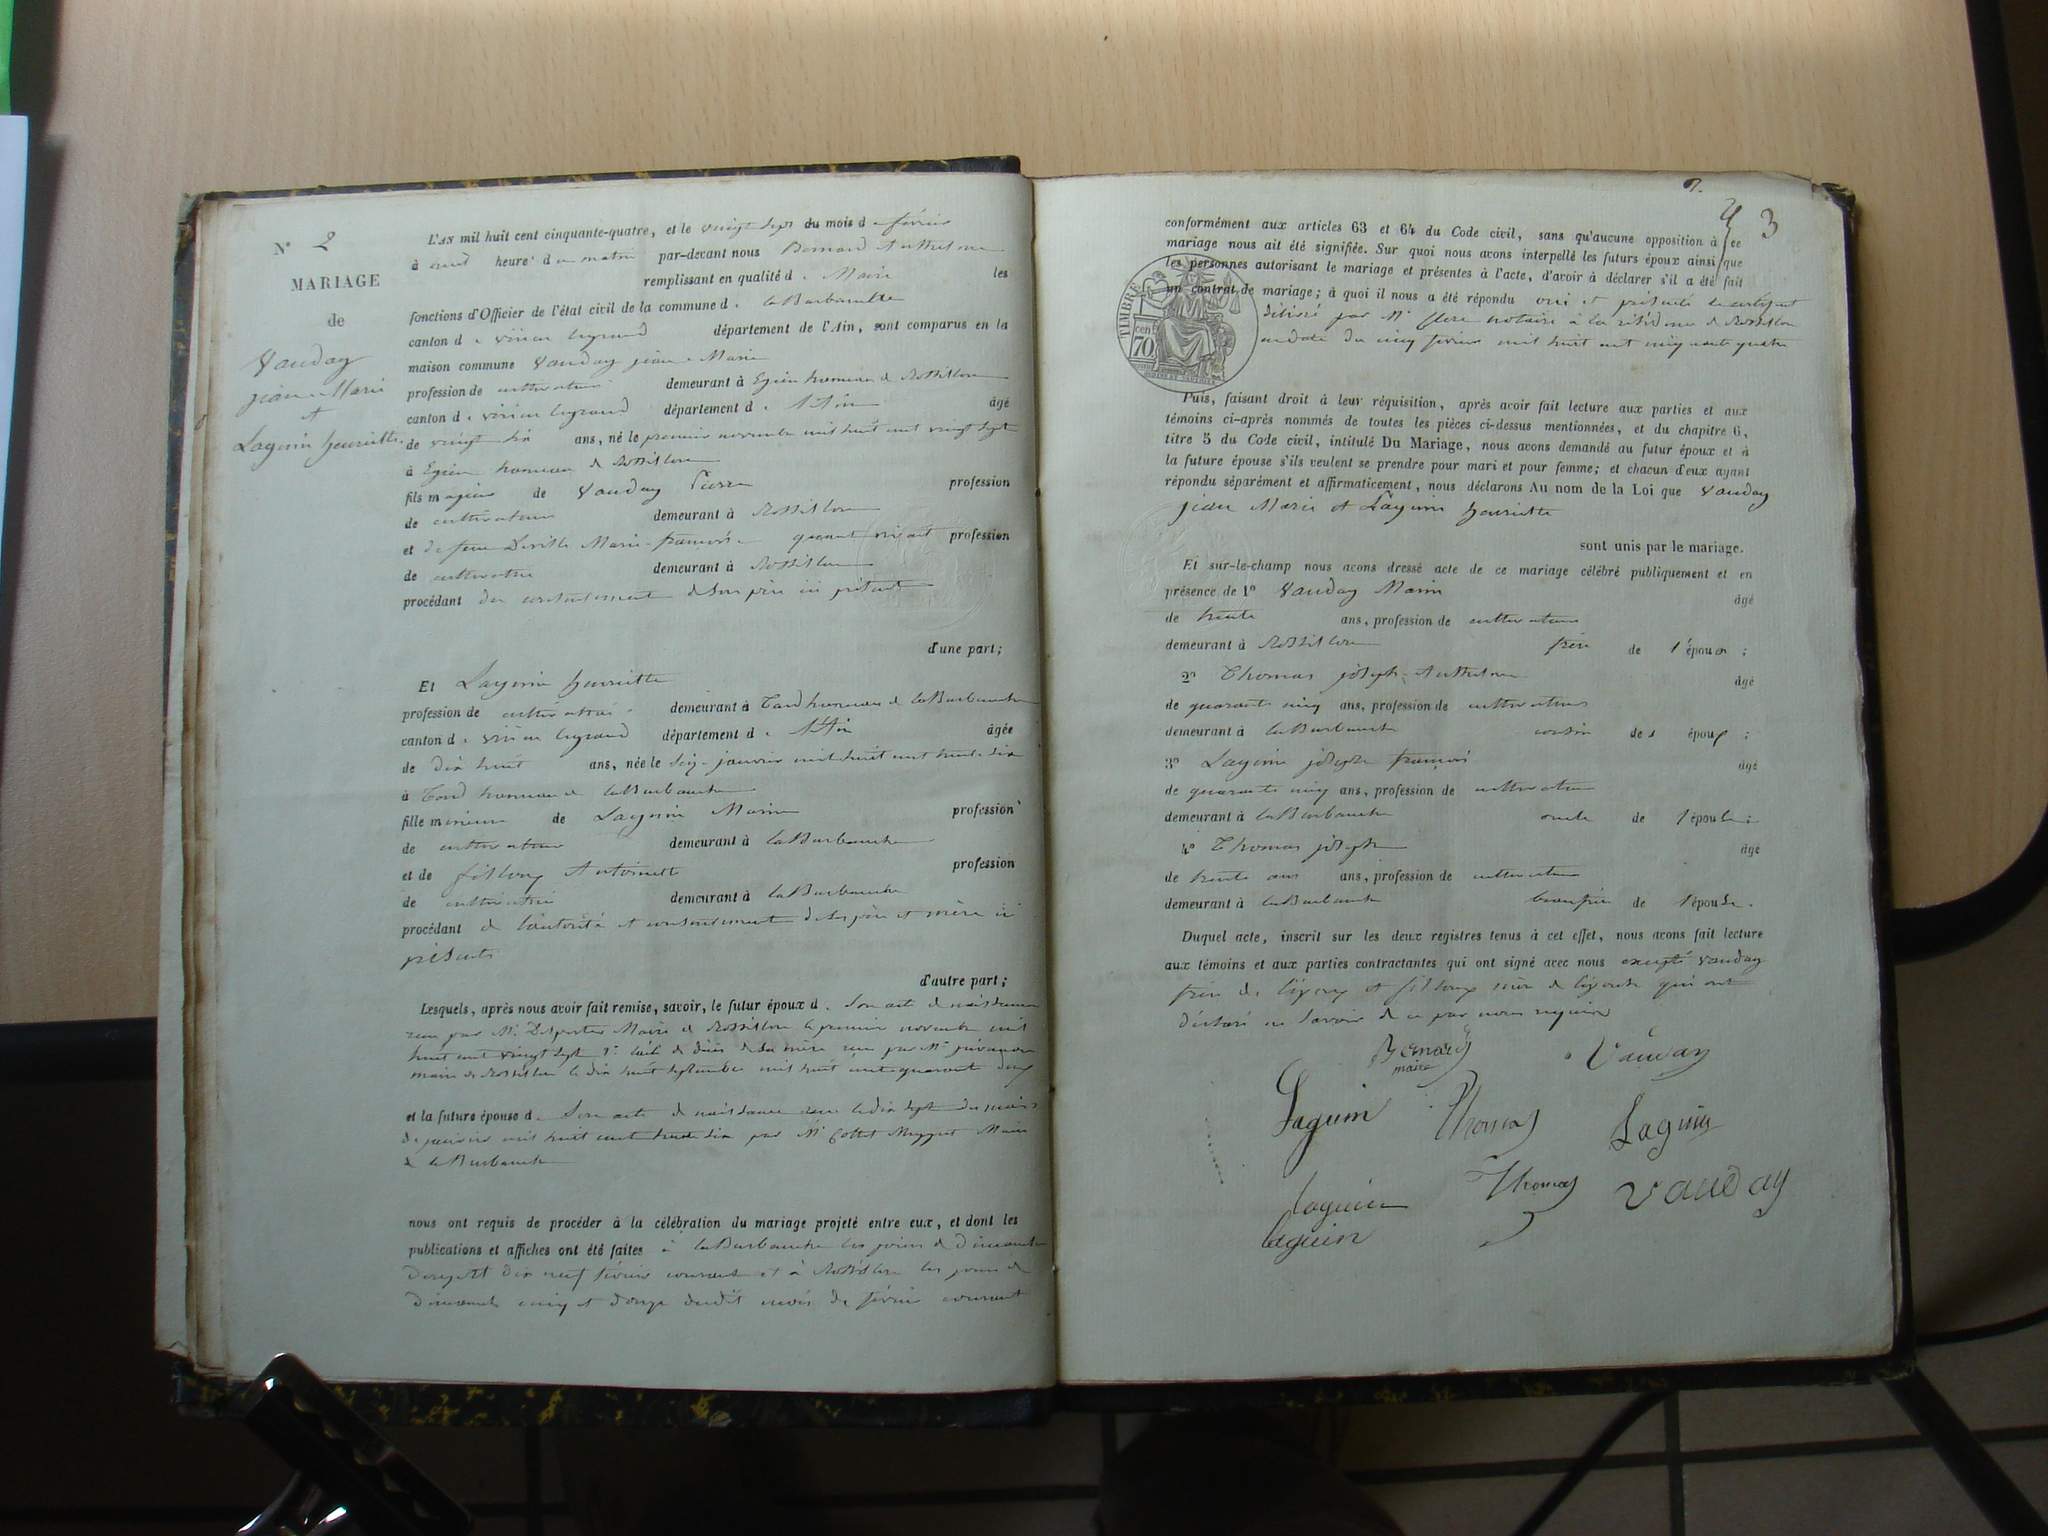 N° 2
MARIAGE
de
Vauday
jean Marie
et
Laguin henriette
L'AN mil huit cent cinquante-quatre, et le vingt sept du mois de février
à heure du matin par-devant nous Bernard Anthelme
remplissant en qualité de Maire les
fonctions d'Officier de l'état civil de la commune de la Burbanche
canton de virieu legrand département de l'Ain, sont comparus en la
maison commune Vauday jean Marie
profession de cultivateur demeurant à Egieu hameau de Rossillon
canton de virieu legrand département de l'Ain âgé
de vingt six ans, né le premier novembre mil huit cent vingt sept
à Egieu hameau de Rossillon
fils majeur de Vauday Pierre profession
de cultivateur demeurant à Rossillon
et de feue Marie françoise quand vivait profession
de cultivatrice demeurant à Rossillon
procédant du consentement de son père ici présent
d'une part;
Et Laguin henriette
profession de cultivatrice demeurant à hameau de la Burbanche
canton de virieu legrand département de l'Ain âgée
de dix huit ans, née le seize janvier mil huit cent trente six
à hameau de la Burbanche
fille mineure de Laguin Marin profession
de cultivateur demeurant à la Burbanche
et de fillon Antoinette profession
de cultivatrice demeurant à la Burbanche
procédant de l'autorité et consentement de ses père et mère ici
présents
d'autre part;
Lesquels, après nous avoir fait remise, savoir, le futur époux de son acte de naissance
reçu par Mr Maire de Rossillon le premier novembre mil
huit cent vingt sept de décès de sa mère reçu par Mr
maire de Rossillon le dix huit septembre mil huit cent quarante deux
et la future épouse de son acte de naissance reçu le dix sept du mois
de janvier mil huit cent trente six par Mr Maire
de la Burbanche
nous ont requis de procéder à la célébration du mariage projeté entre eux, et dont les
publications et affiches ont été faites à la Burbanche les jours de dimanche
douze et dix neuf février courant et à Rossillon les jours de
dimanche cinq et douze dudit mois de février courant
3
conformément aux articles 63 et 64 du Code civil, sans qu'aucune opposition à ce
mariage nous ait été signifiée. Sur quoi nous avons interpellé les futurs époux ainsi que
les personnes autorisant le mariage et présentes à l'acte, d'avoir à déclarer s'il a été fait
un contrat de mariage; à quoi il nous a été répondu oui et présenté le certificat
délivré par Mr notaire à la résidence de Rossillon
en date du cinq février mil huit cent cinquante quatre
TIMBRE
cen
70
Puis, faisant droit à leur réquisition, après avoir fait lecture aux parties et aux
témoins ci-après nommés de toutes les pièces ci-dessus mentionnées, et du chapitre 6,
titre 5 du Code civil, intitulé Du Mariage, nous avons demandé au futur époux et à
la future épouse s'ils veulent se prendre pour mari et pour femme; et chacun d'eux ayant
répondu séparément et affirmativement, nous déclarons Au nom de la Loi que Vauday
jean Marie et Laguin henriette
sont unis par le mariage.
Et sur-le-champ nous avons dressé acte de ce mariage célébré publiquement et en
présence de 1° Vauday Marin âgé
de trente ans, profession de cultivateur
demeurant à Rossillon frère de l'époux;
2° Thomas joseph Anthelme âgé
de quarante cinq ans, profession de cultivateur
demeurant à la Burbanche cousin des époux;
3° Laguin joseph françois âgé
de quarante cinq ans, profession de cultivateur
demeurant à la Burbanche oncle de l'épouse;
4° Thomas joseph âgé
de trente ans ans, profession de cultivateur
demeurant à la Burbanche beau frère de l'épouse.
Duquel acte, inscrit sur les deux registres tenus à cet effet, nous avons fait lecture
aux témoins et aux parties contractantes qui ont signé avec nous excepté Vauday
frère de l'époux et fillon mère de l'épouse qui ont
déclaré ne savoir de ce par nous requis
Bernard
maire
Vauday
Laguin
Thomas
Laguin
laguin
Thomas
vauday
laguin